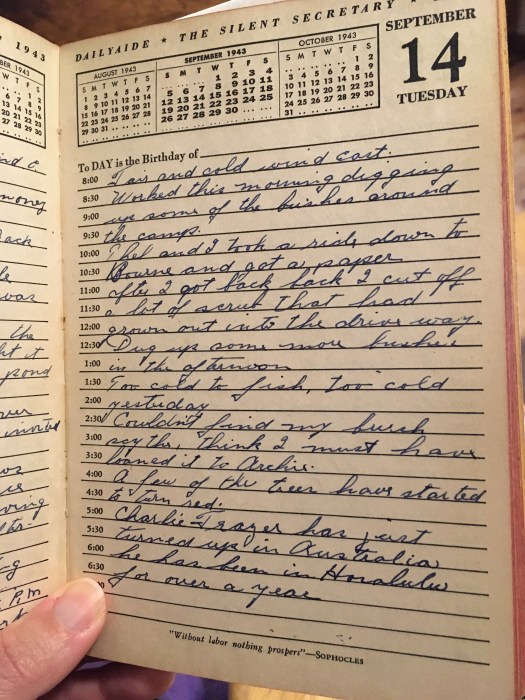 1943
DAILYAIDE ★ THE SILENT SECRETARY ★
SEPTEMBER
14
TUESDAY
AUGUST 1943
S M T W T F S
1 2 3 4 5 6 7
8 9 10 11 12 13 14
15 16 17 18 19 20 21
22 23 24 25 26 27 28
29 30 31 . . . .
SEPTEMBER 1943
S M T W T F S
. . . 1 2 3 4
5 6 7 8 9 10 11
12 13 14 15 16 17 18
19 20 21 22 23 24 25
26 27 28 29 30 . .
OCTOBER 1943
S M T W T F S
. . . . . 1 2
3 4 5 6 7 8 9
10 11 12 13 14 15 16
17 18 19 20 21 22 23
24 25 26 27 28 29 30
31 . . . . . .
To DAY is the Birthday of
8:00 Fair and cold wind east.
8:30 Worked this morning digging
9:00 up some of the bushes around
9:30 the camp.
10:00 Phel and I took a ride down to
10:30 Bourne and got a paper
11:00 after I got back back I cut off
11:30 a lot of scrub that had
12:00 grown out into the drive way.
12:30 Dug up some more bushes
1:00 in the afternoon
1:30 Too cold to fish, too cold
2:00 yesterday
2:30 Couldn't find my bush
3:00 scythe, think I must have
3:30 loaned it to Archie.
4:00 A few of the trees have started
4:30 to turn red.
5:00 Charlie Frazer has just
5:30 turned up in Australia
6:00 he has been in Honolulu
6:30 for over a year
"Without labor nothing prospers"—SOPHOCLES